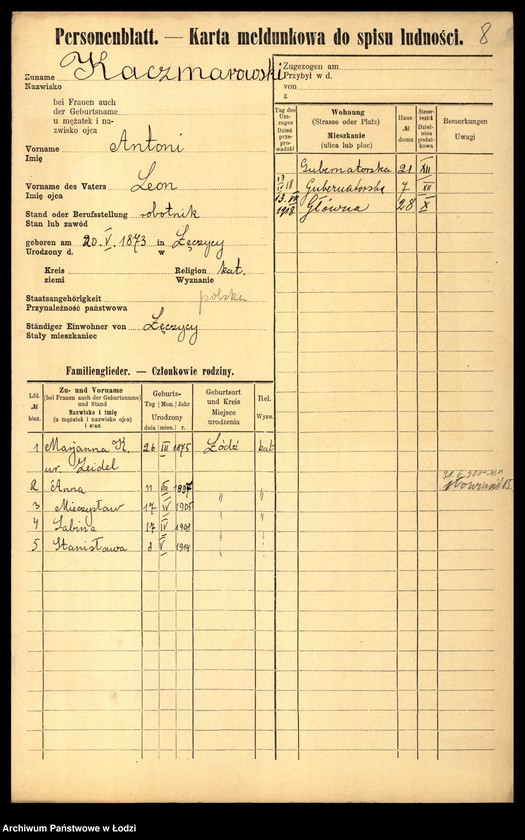 Personenblatt. — Karta meldunkowa do spisu ludności. 8
Zuname Kaczmarowski
Nazwisko
bei Frauen auch
der Geburtsname
u mężatek i na-
zwisko ojca
Vorname Antoni
Imię
Vorname des Vaters Leon
Imię ojca
Stand oder Berufsstellung robotnik
Stan lub zawód
geboren am 20. V. 1873 in Łęczycy
Urodzony d. w
Kreis Religion kat.
ziemi Wyznanie
Staatsangehörigkeit polska
Przynależność państwowa
Ständiger Einwohner von Łęczycy
Stały mieszkaniec
Zugezogen am
Przybył w d.
von
z
Tag des Um-zuges Dzień prze-prowadzki
Wohnung (Strasse oder Platz) Mieszkanie (ulica lub plac)
Haus- № domu
Steuer-bezirk Dzielnica podatkowa
Bemerkungen Uwagi
Gubernatorska 21 XII
13 IV 18 Gubernatorska 7 XII
13. VII 1918 Główna 28 X
Familienglieder. — Członkowie rodziny.
Lfd. № bież.
Zu- und Vorname (bei Frauen auch der Geburtsname) und Stand Nazwisko i imię (u mężatek i nazwisko ojca) i stan
Geburts- Tag Mon. Jahr Urodzony dnia mies. r.
Geburtsort und Kreis Miejsce urodzenia
Rel. Wyzn.
1 Marjanna K. 26 III 1875 Łódź kat
ur. Zeidel
2 Anna 11 VII 1897 " "
3 Mieczysław 17 IV 1905 " "
4 Sabina 17 IV 1908 " "
5 Stanisława 8 V 1914 " "
Archiwum Państwowe w Łodzi